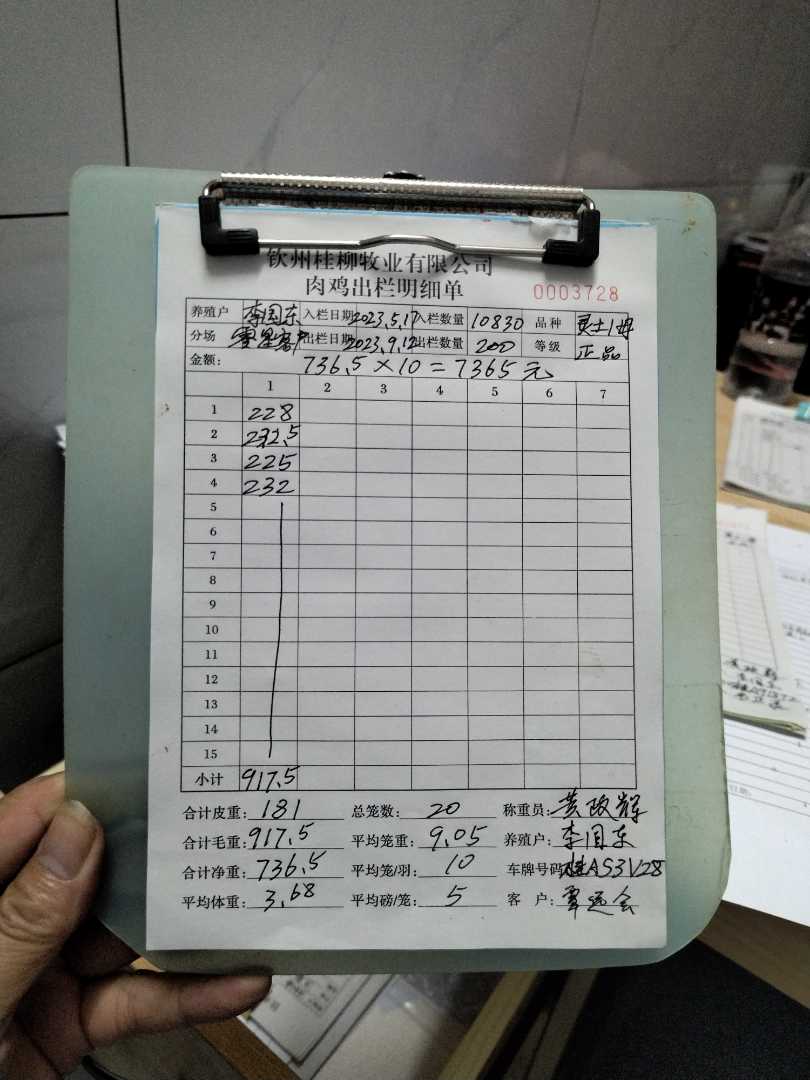 钦州桂柳牧业有限公司
肉鸡出栏明细单
0003728
养殖户 李国东 入栏日期 2023.5.17 入栏数量 10830 品种
分场 出栏日期 2023.9.12 出栏数量 200 等级 正品
金额: 736.5×10=7365元
1 2 3 4 5 6 7
1 228
2 232.5
3 225
4 232
5
6
7
8
9
10
11
12
13
14
15
小计 917.5
合计皮重: 181 总笼数: 20 称重员: 黄政辉
合计毛重: 917.5 平均笼重: 9.05 养殖户: 李国东
合计净重: 736.5 平均笼/羽: 10 车牌号码 桂AS3V28
平均体重: 3.68 平均磅/笼: 5 客 户: 覃运会